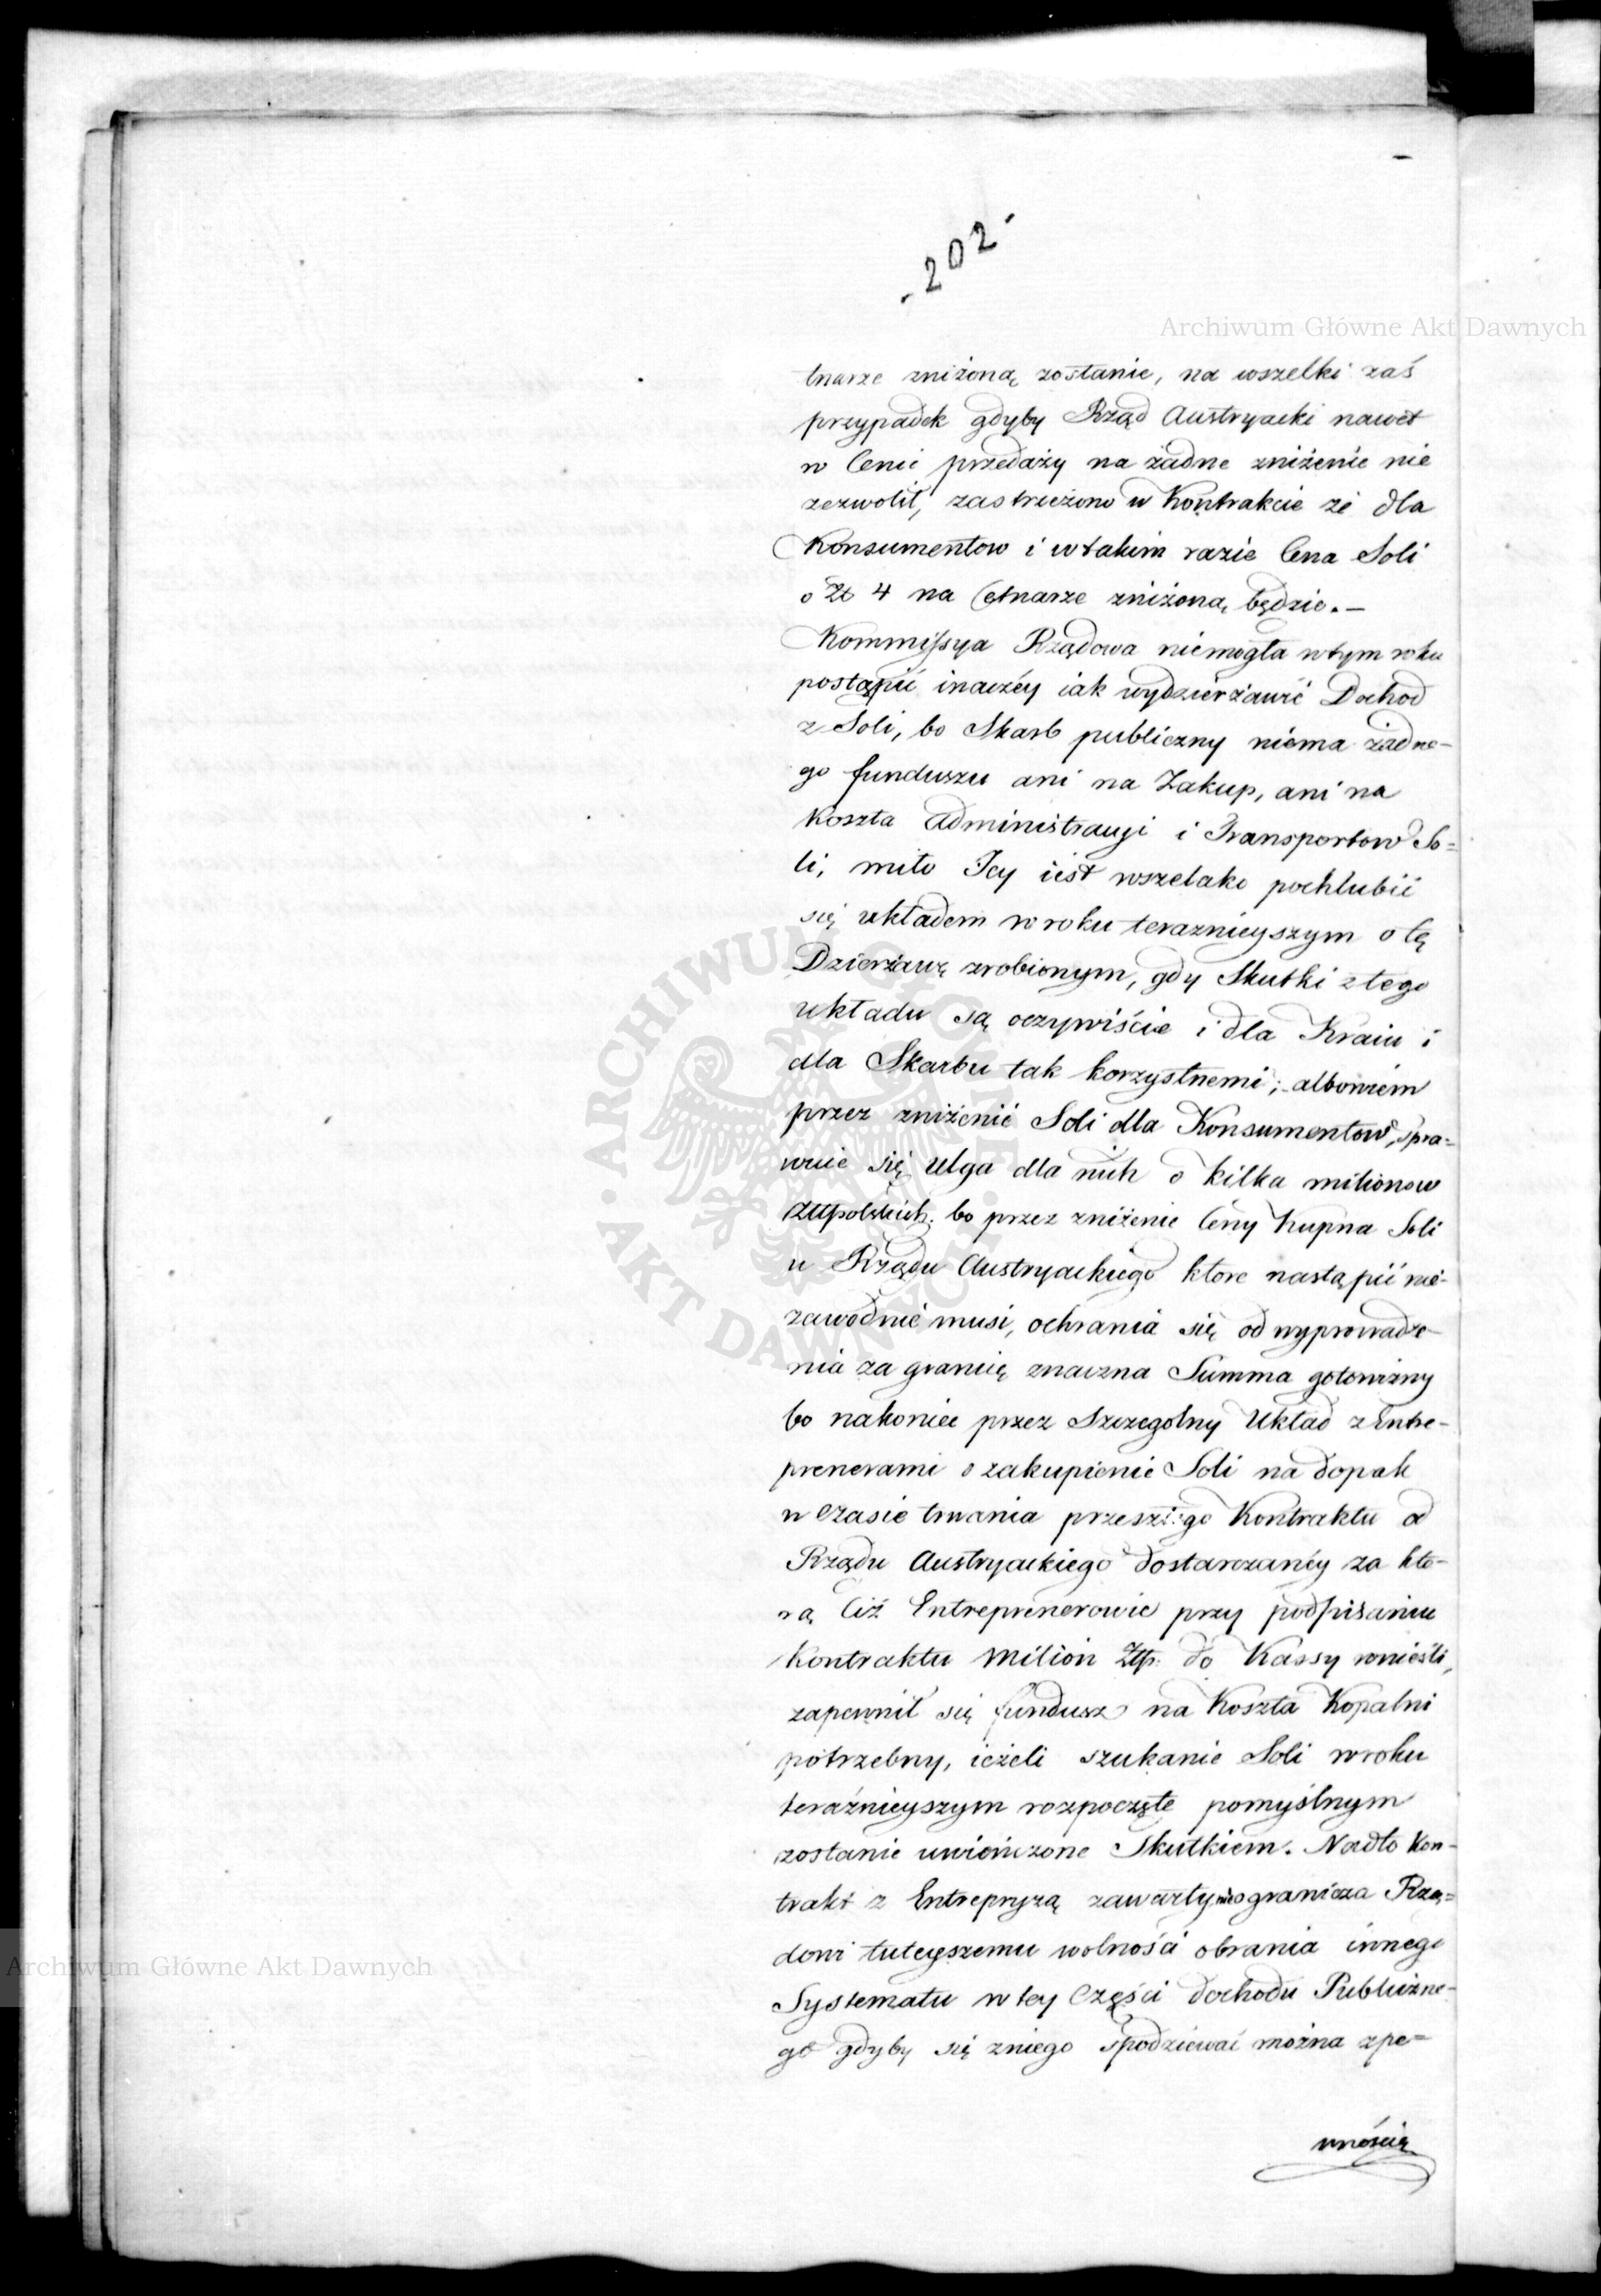 - 202 -
Archiwum Główne Akt Dawnych
tnarze zniżoną zostanie, na wszelki zaś
przypadek gdyby Rząd Austryacki nawet
w Cenie przedaży na żadne zniżenie nie
zezwolił, zastrzeżono w Kontrakcie że dla
Konsumentow i wtakim razie Cena Soli
o Zł 4 na Cetnarze zniżoną będzie. —
Kommissya Rządowa niemogła wtym roku
postąpić inaczéy iak wydzierżawić Dochod
z Soli, bo Skarb publiczny niema żadne-
go funduszu ani na Zakup, ani na
koszta Administracyi i Transportow So=
li, miło Jey iest wszelako pochlubić
się układem w roku teraznieyszym o tę
Dzierżawę zrobionym, gdy Skutki ztego
układu są oczywiście i dla Kraiu i
dla Skarbu tak korzystnemi; albowiem
przez zniżenie Soli dla Konsumentow, spra=
wuie się ulga dla nich o kilka milionow
Złłpolskich. bo przez zniżenie Ceny Kupna Soli
u Rządu Austryackiego ktore nastąpić nie-
zawodnie musi, ochrania się od wyprowadze-
nia za granicę znaczna Summa gotowizny
bo nakoniec przez Szczegolny Układ z Entre-
prenerami o zakupienie Soli na dopak
w czasie trwania przeszłego Kontraktu od
Rządu Austryackiego dostarczanéy za kto-
rą Ciż Entreprenerowie przy podpisaniu
Kontraktu Milion Złp. do Kassy wnieśli,
zapewnił się fundusz na Koszta Kopalni
potrzebny, ieżeli szukanie Soli w roku
teraźnieyszym rozpoczęte pomyślnym
zostanie uwieńczone Skutkiem. Nadto Kon-
trakt z Entrepryzą zawarty nieogranicza Rzą=
dowi tuteyszemu wolności obrania innego
Systematu w tey Części dochodu Publiczne-
go gdyby się zniego spodziewać można zpe=
wnością
ARCHIWUM GŁÓWNE · AKT DAWNYCH ·
Archiwum Główne Akt Dawnych